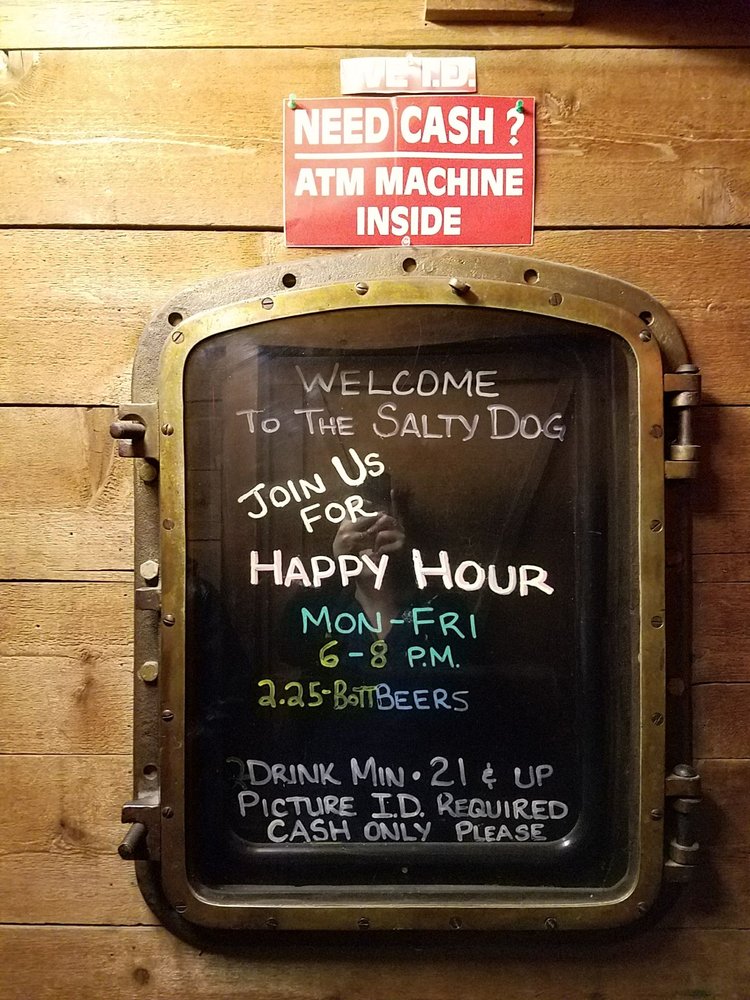 WE I.D.
NEED CASH ?
ATM MACHINE
INSIDE
WELCOME
TO THE SALTY DOG
JOIN US
FOR
HAPPY HOUR
MON-FRI
6-8 P.M.
2.25-BOTTBEERS
2DRINK MIN • 21 & UP
PICTURE I.D. REQUIRED
CASH ONLY PLEASE